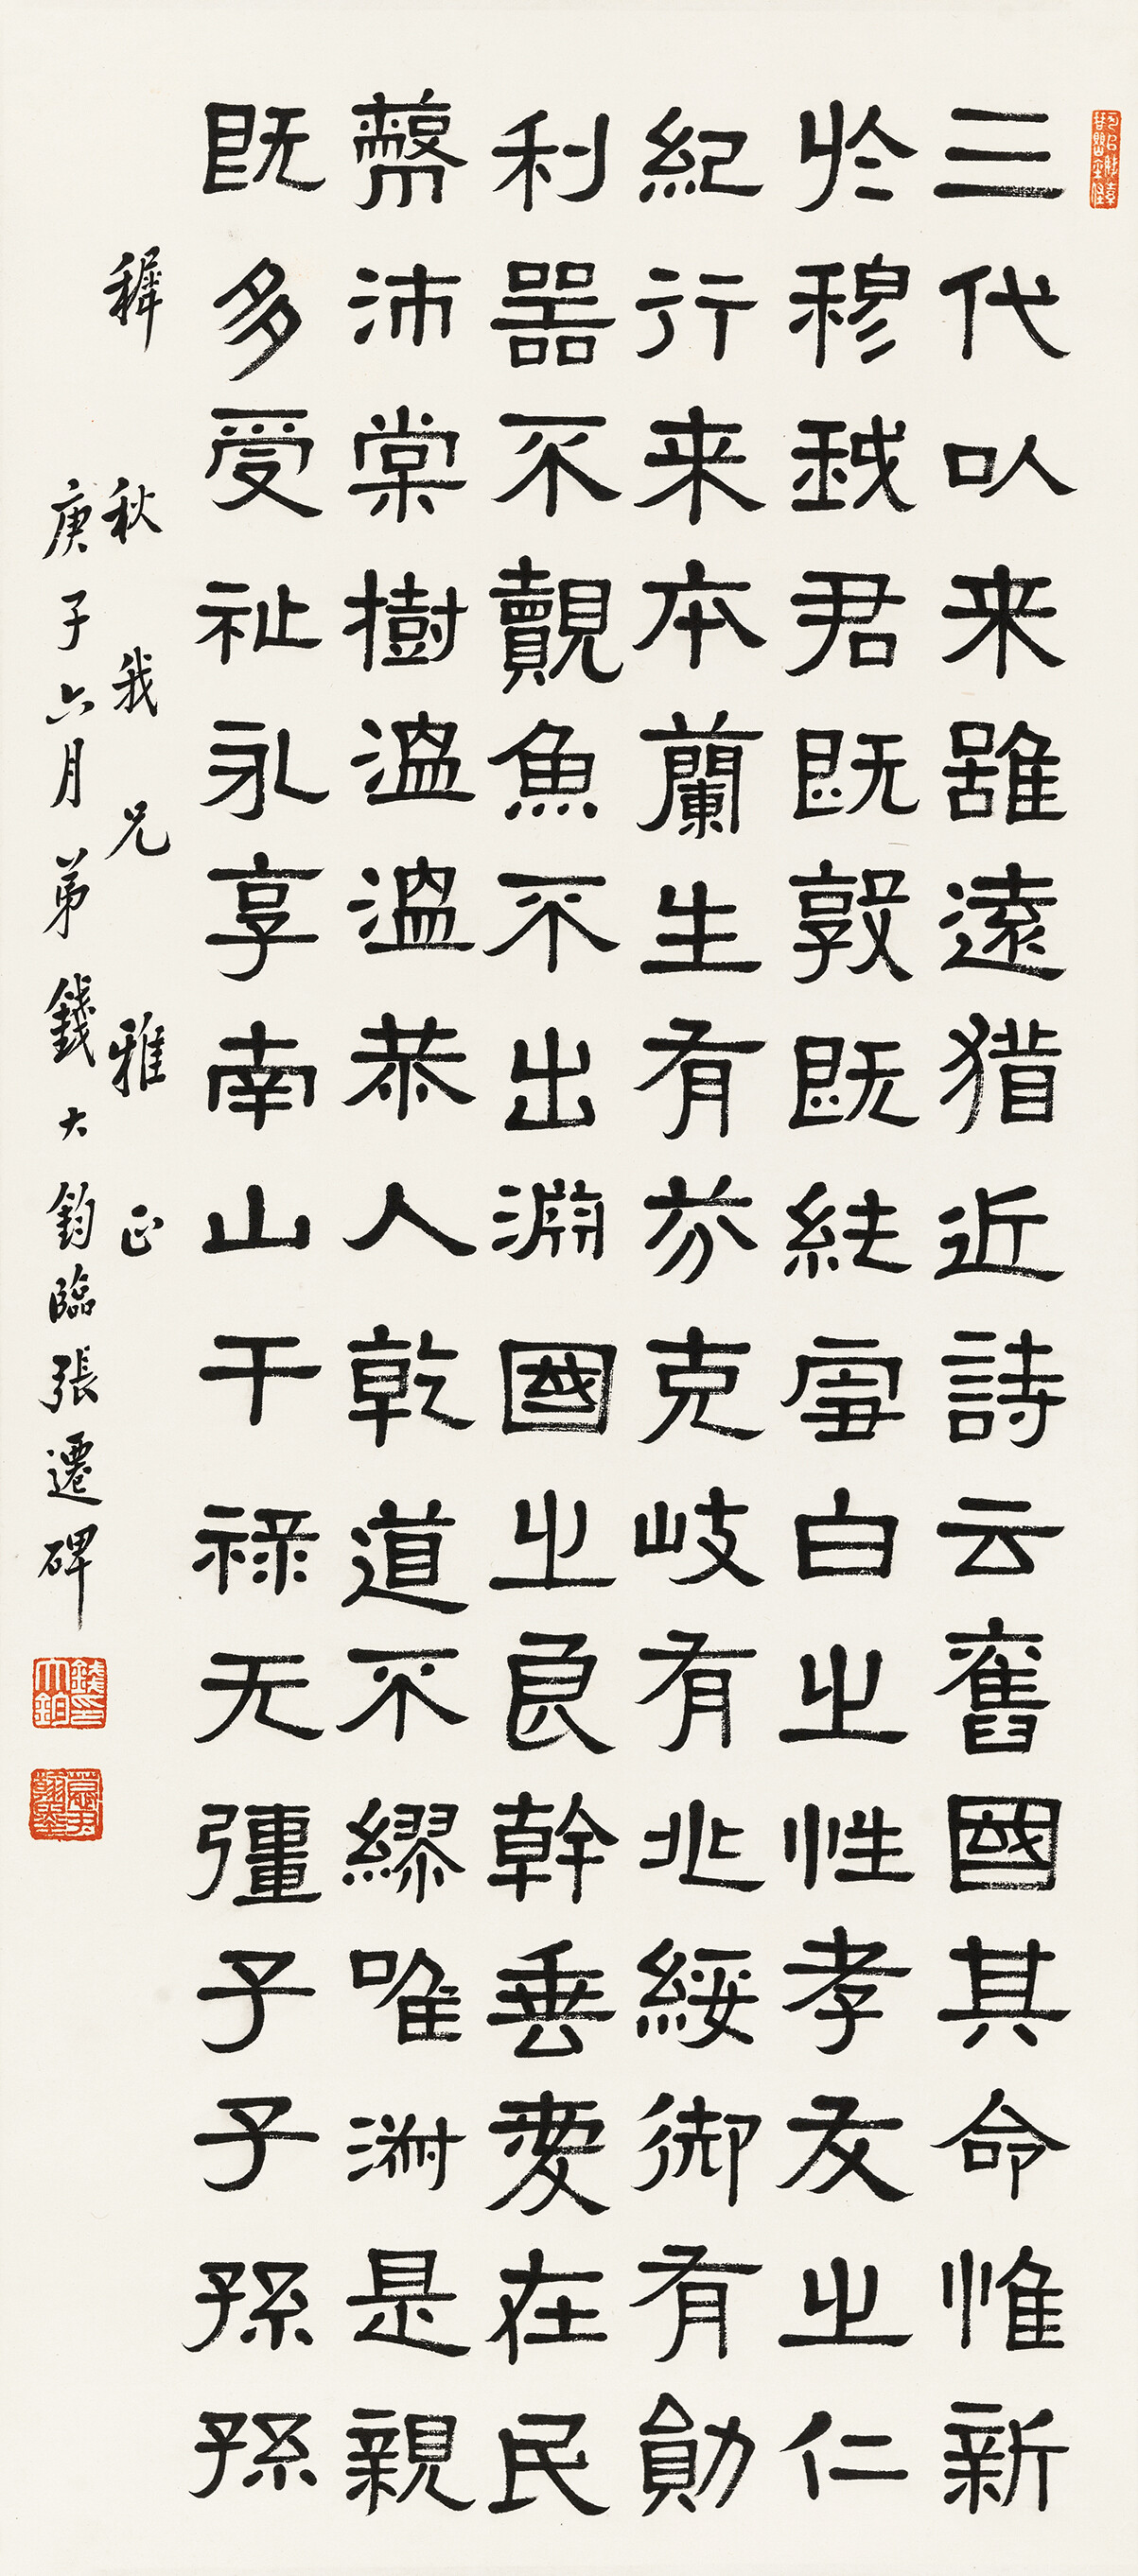 三代以来雖遠猶近詩云舊國其命惟新
於穆我君既敦既純雪白之性孝友之仁
紀行来本蘭生有芬克岐有兆綏御有勛
利器不覿魚不出淵國之良幹垂愛在民
蔽沛棠樹温温恭人乾道不繆唯淑是親
既多受祉永享南山干禄无彊子子孫孫
穉秋我兄雅正
庚子六月弟錢大鈞臨張遷碑
錢印大鈞
慕尹翰墨